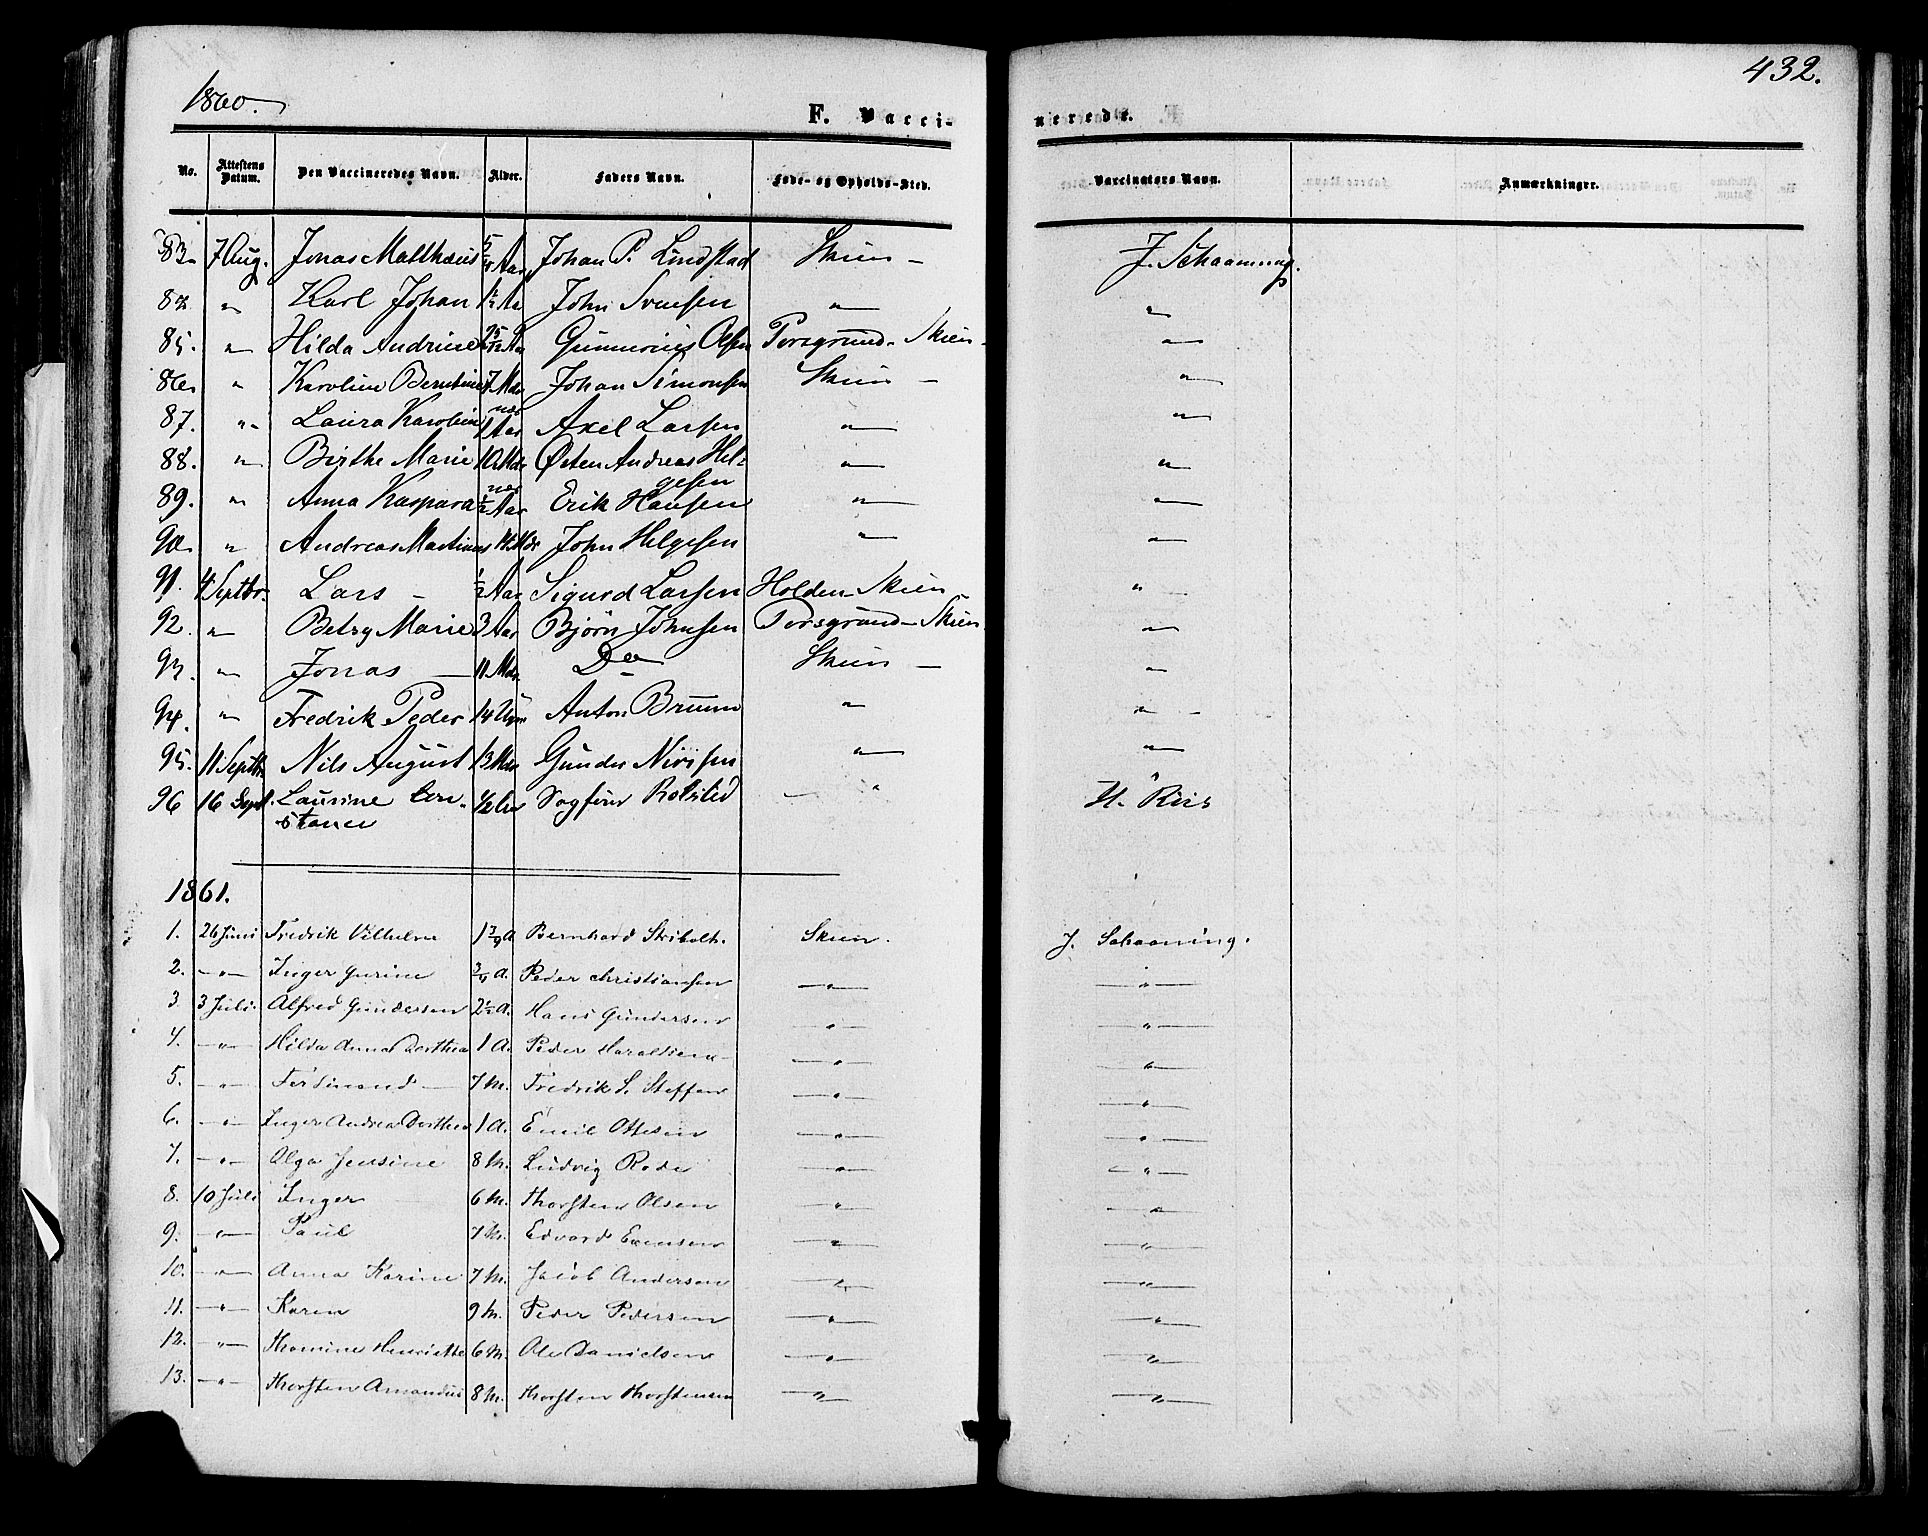 1860.
432.
F. Vacci-
nerede.
No. Attestens Datum. Den Vaccineredes Navn. Alder. Faders Navn. Føde- og Opholds-Sted. Vaccinators Navn. Anmærkninger.
83. 7 Aug. Jonas Matthæus Aar Johan P. Lindstad Skien – J. Schaanning.
84. " Karl Johan 1½ Aa John " "
85. " Hilda Andrine Gunnerius Olsen Porsgrund – Skien "
86. " Karoline Berntine 7 Mdr Johan Simonsen Skien – "
87. " Laura Karoline 1 Aar Axel Larsen " "
88. " Birthe Marie 10 Mdr Østen Andreas Hel-gesen " "
89. " Anna Kaspara ½ Aar Erik Hansen " "
90. " Andreas Martinus 14 Mdr John Helgesen " "
91. 4 Septbr. Lars – ½ Aar Sigurd Larsen Holden – Skien "
92. " Betzy Marie 3 Aar Bjørn Johnsen Porsgrund – Skien "
93. " Jonas – 11 Mdr Do Skien – "
94. " Fredrik Peder 14 Anton Bruun " "
95. 11 Septbr. Nils August 13 Mdr Gunder " "
96 16 Sept. Laurine Con-stance ½ Aar Rolsted " H. Riis
1861.
1. 26 Juni Fredrik Vilhelm A Bernhard Stribolt. Skien. J. Schaanning.
2. " Inger Gurine ¾ A. Peder Christiansen " "
3. 3 Juli. Alfred Gundersen 2½ A. Hans Gundersen " "
4. " Hilda Anna Dorthea 1 A. Peder " "
5. " Ferdinand – 7 M. Fredrik S. Steffens " "
6. " Inger Andrea Dorthea 1 A. Emil Ottesen " "
7. " Olga Jensine 8 M. Ludvig Rode " "
8. 10 Juli Inger 6 M. Thorsten Olsen " "
9. " Paul 7 M. Edvard Evensen " "
10. " Anna Karine 7 M. Jacob Andersen " "
11. " Karen 9 M. Peder Pedersen " "
12. " Thomine Henriette 6 M. Ole Danielsen " "
13. " Thorsten Amandus 8 M. Thorsten Thorstensen " "